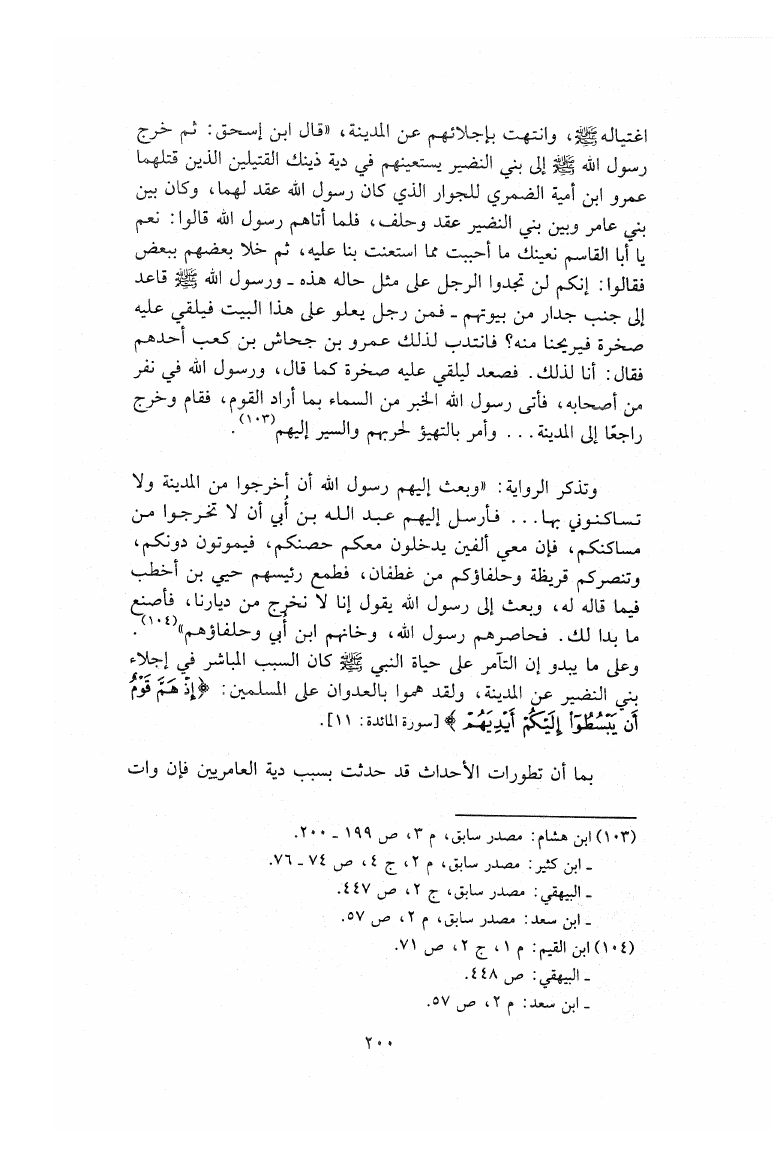 اغتياله ﷺ، وانتهت بإجلائهم عن المدينة، «قال ابن إسحق: ثم خرج
رسول الله ﷺ إلى بني النضير يستعينهم في دية ذينك القتيلين الذين قتلهما
عمرو ابن أمية الضمري للجوار الذي كان رسول الله عقد لهما، وكان بين
بني عامر وبين بني النضير عقد وحلف، فلما أتاهم رسول الله قالوا: نعم
يا أبا القاسم نعينك ما أحببت مما استعنت بنا عليه، ثم خلا بعضهم ببعض
فقالوا: إنكم لن تجدوا الرجل على مثل حاله هذه ـ ورسول الله ﷺ قاعد
إلى جنب جدار من بيوتهم ـ فمن رجل يعلو على هذا البيت فيلقي عليه
صخرة فيريحنا منه؟ فانتدب لذلك عمرو بن جحاش بن كعب أحدهم
فقال: أنا لذلك. فصعد ليلقي عليه صخرة كما قال، ورسول الله في نفر
من أصحابه، فأتى رسول الله الخبر من السماء بما أراد القوم، فقام وخرج
راجعًا إلى المدينة... وأمر بالتهيؤ لحربهم والسير إليهم(١٠٣).
وتذكر الرواية: «وبعث إليهم رسول الله أن أخرجوا من المدينة ولا
تساكنوني بها... فأرسل إليهم عبد الله بن أُبي أن لا تخرجوا من
مساكنكم، فإن معي ألفين يدخلون معكم حصنكم، فيموتون دونكم،
وتنصركم قريظة وحلفاؤكم من غطفان، فطمع رئيسهم حيي بن أخطب
فيما قاله له، وبعث إلى رسول الله يقول إنا لا نخرج من ديارنا، فأصنع
ما بدا لك. فحاصرهم رسول الله، وخانهم ابن أُبي وحلفاؤهم»(١٠٤).
وعلى ما يبدو إن التآمر على حياة النبي ﷺ كان السبب المباشر في إجلاء
بني النضير عن المدينة، ولقد هموا بالعدوان على المسلمين: ﴿إِذْ هَمَّ قَوْمٌ
أَن يَبْسُطُوٓا۟ إِلَيْكُمْ أَيْدِيَهُمْ﴾ [سورة المائدة: ١١].
بما أن تطورات الأحداث قد حدثت بسبب دية العامريين فإن وات
(١٠٣) ابن هشام: مصدر سابق، م ٣، ص ١٩٩ ـ ٢٠٠.
ـ ابن كثير: مصدر سابق، م ٢، ج ٤، ص ٧٤ ـ ٧٦.
ـ البيهقي: مصدر سابق، ج ٢، ص ٤٤٧.
ـ ابن سعد: مصدر سابق، م ٢، ص ٥٧.
(١٠٤) ابن القيم: م ١، ج ٢، ص ٧١.
ـ البيهقي: ص ٤٤٨.
ـ ابن سعد: م ٢، ص ٥٧.
٢٠٠